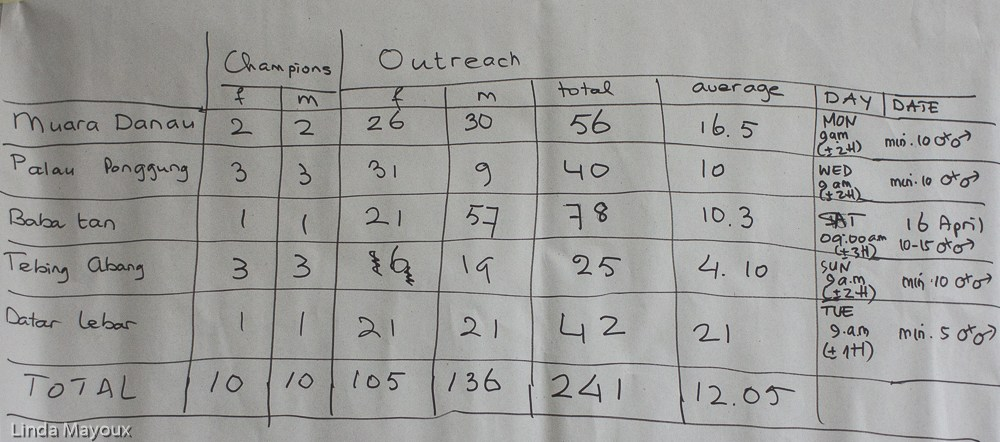 Champions Outreach
f m f m total average DAY DATE
Muara Danau 2 2 26 30 56 16.5 MON 9am (±2H) min. 10
Palau Ponggung 3 3 31 9 40 10 WED 9am (±2H) min. 10
Baba tan 1 1 21 57 78 10.3 SAT 09.00am (±3H) 16 April 10-15
Tebing abang 3 3 6 19 25 4.10 SUN 9a.m (±2H) min. 10
Datar Lebar 1 1 21 21 42 21 TUE 9.am (±1H) min. 5
TOTAL 10 10 105 136 241 12.05
Linda Mayoux